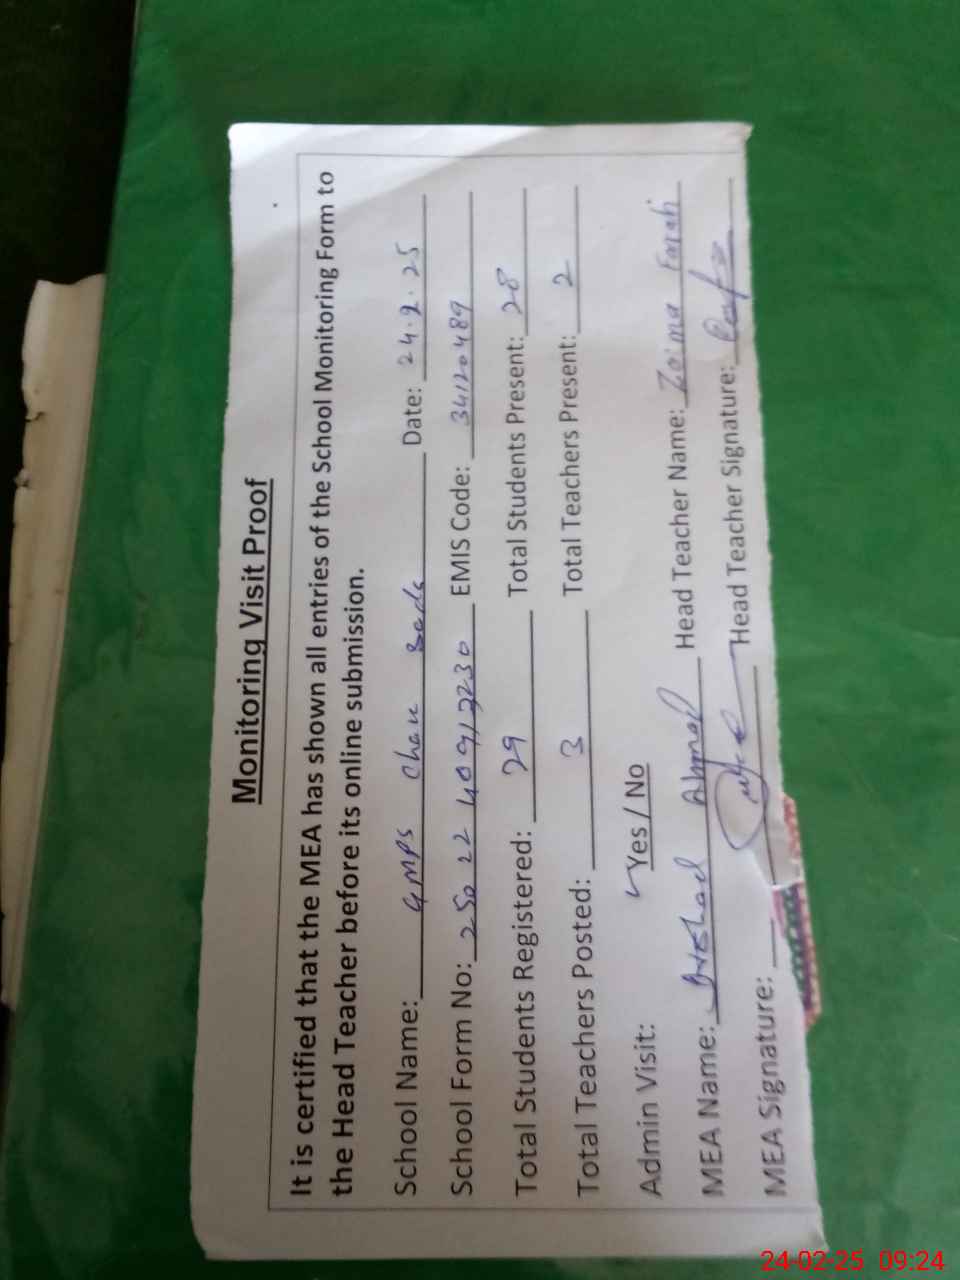 Monitoring Visit Proof
It is certified that the MEA has shown all entries of the School Monitoring Form to
the Head Teacher before its online submission.
School Name: GMPS Chak Date: 24.2.25
School Form No: EMIS Code: 34120489
Total Students Registered: 29 Total Students Present: 28
Total Teachers Posted: 3 Total Teachers Present: 2
Admin Visit: Yes / No
MEA Name: Ahmad Head Teacher Name:
MEA Signature: Head Teacher Signature:
24-02-25 09:24